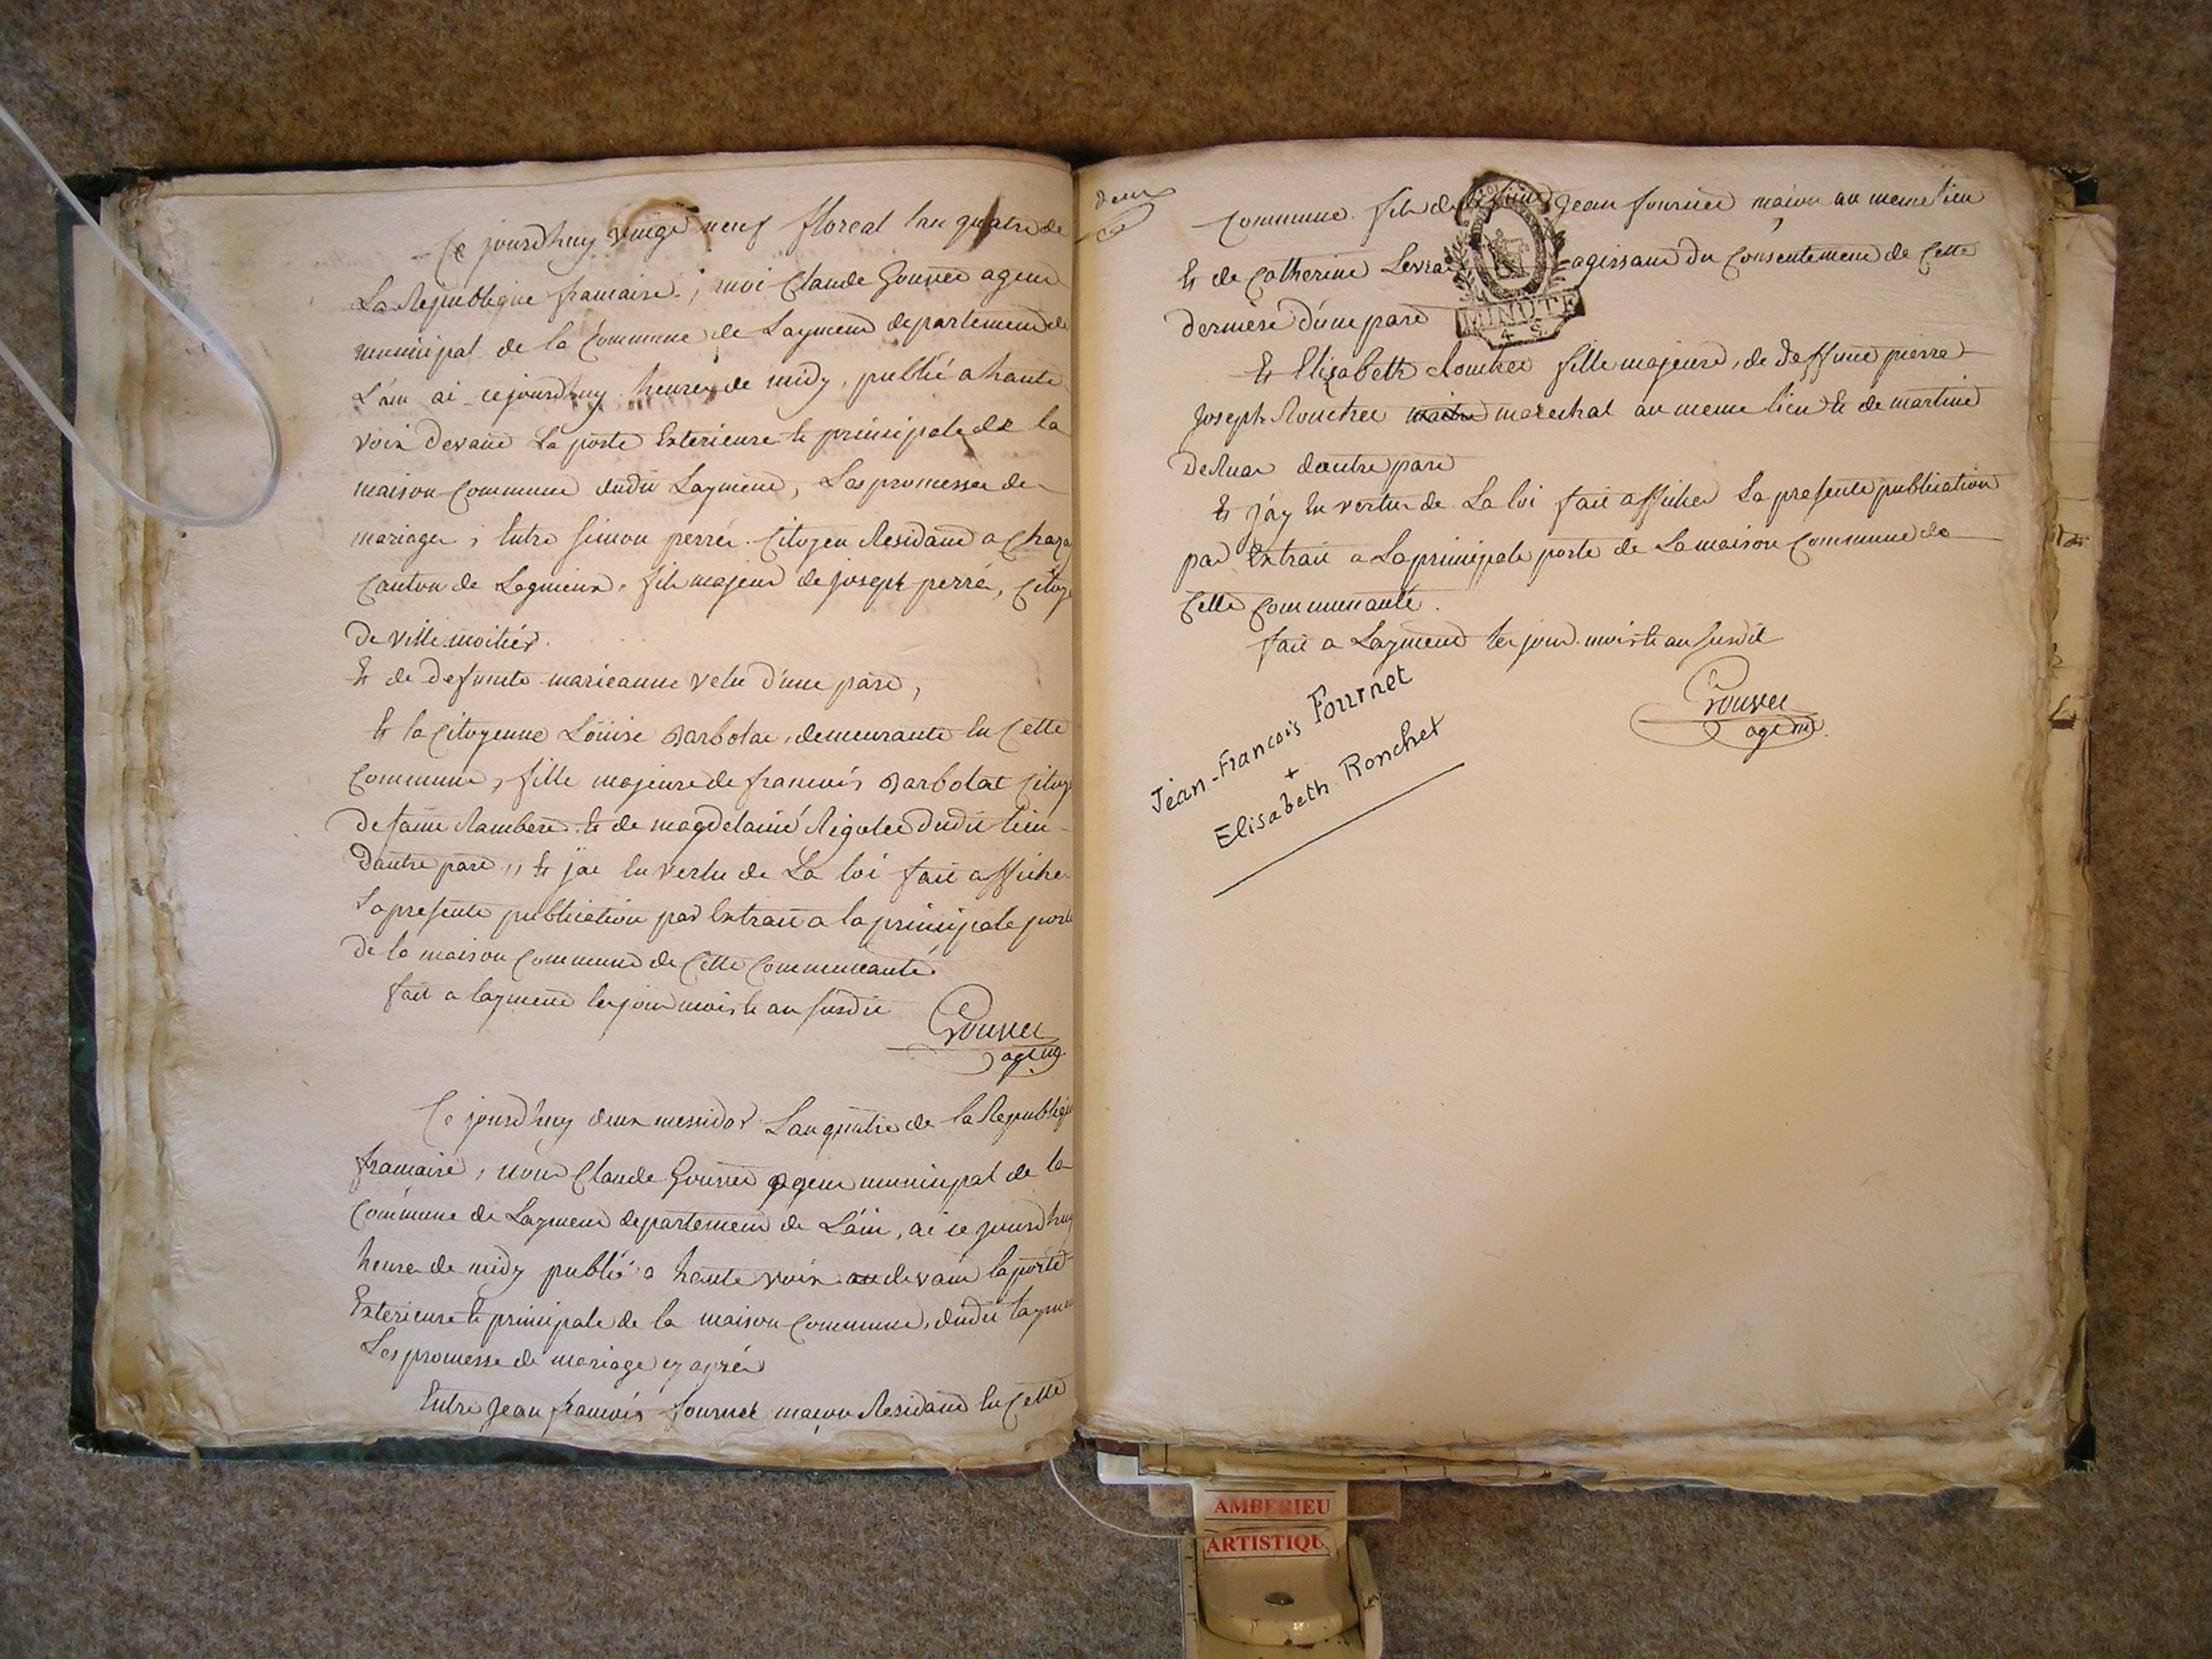 Ce jourdhuy vingt neuf floreal l'an quatre de
La Republique francaise, moi Claude Gouvet agent
municipal de la Commune de Layment departement de
L'ain ai cejourdhuy heures de midy, publié a haute
voix devant La porte Exterieure et principale de la
maison Commune dudit Layment, Les promesses de
mariage, Entre Simon perret Citoyen Residant a
Canton de Lagnieux, fils majeur de joseph perret,
de ville
Et de defunte marieanne d'une part,
Et la Citoyenne Loüise Barbolat, demeurante En Cette
Commune, fille majeure de francois Barbolat
de saint Rambert et de magdelaine dudit lieu
Dautre part,, Et jai En vertu de La loi fait afficher
La presente publication par Extrait a la principale porte
de la maison Commune de Cette Communauté
fait a layment les jour mois et an susdit
Gouvet
age m
Ce jourdhuy deux messidor Lan quatre de la Republique
francaise, nous Claude Gouvet agent municipal de la
Commune de Layment departement de L'ain, ai ce jourdhuy
heures de midy publié a haute voix devant la porte
Exterieure et principale de la maison Commune, dudit
Les promesse de mariage cy aprés
Entre Jean francois fournet maçon Residant En Cette
deux
Commune fils de Jean fournet maçon au meme lieu
Et de Catherine agissant du Consentement de Cette
derniere d'une part
MINUTE
Et Elizabeth Ronchet fille majeure, de deffunt pierre
Joseph Ronchet marechal au meme lieu Et de martine
dautre part
Et j'ay En vertu de La loi fait afficher La presente publication
par Extrait a La principale porte de La maison Commune de
Cette Communauté.
fait a Layment les jour mois et an susdit
Gouvet
age m.
Jean-Francois Fournet
+
Elisabeth Ronchet
AMBERIEU
ARTISTIQU